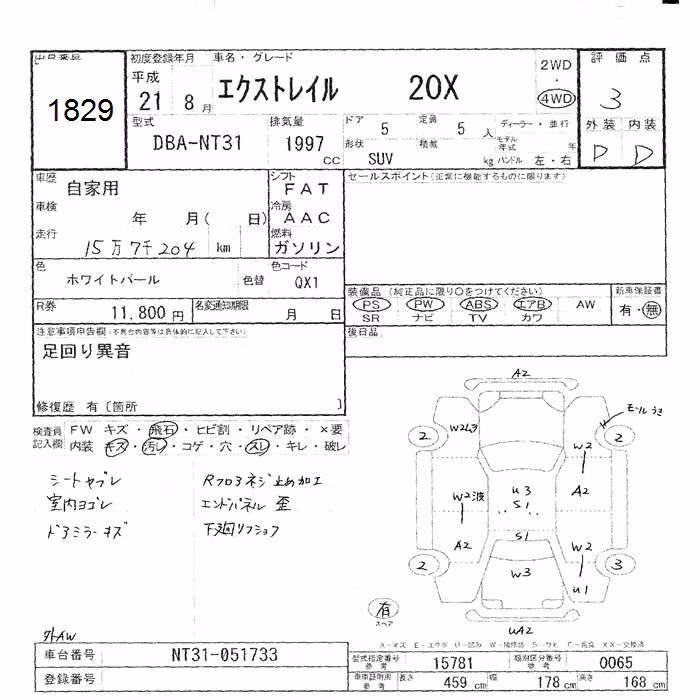 出品番号
1829
初度登録年月 車名・グレード
平成
21 8月
エクストレイル 20X
2WD
・
4WD
評価点
3
外装 内装
D D
型式
DBA-NT31
排気量
1997
CC
ドア 5 定員 5 人
ディーラー・並行
モデル年式 年
形状 SUV 積載 kg ハンドル 左・右
車歴 自家用
車検 年 月( 日)
走行 15万7千204 km
シフト
FAT
冷房
AAC
燃料
ガソリン
セールスポイント(正常に機能するものに限ります)
色 ホワイトパール 色替
色コード
QX1
R券 11,800円
名変通知期限 月 日
装備品(純正品に限り○をつけてください)
PS PW ABS エアB AW
SR ナビ TV カワ
新車保証書
有・無
後日品
注意事項申告欄・不具合内容等は具体的に記入して下さい
足回り異音
修復歴 有〔箇所 〕
検査員記入欄
FW キズ・飛石・ヒビ割・リペア跡・×要
内装 キズ・汚レ・コゲ・穴・スレ・キレ・破レ
シートヤブレ
室内ヨゴレ
ドアミラーキズ
Rフロアネジ止め加工
エンドパネル 歪
下廻リ
外AW
A2
モールうき
2 2
W2
W2
W2波
U3
S1
A2
A2
S1
W2
2 3
W3
U1
有
スペア
WA2
A-キズ E-エクボ U-凹み W-補修跡 S-サビ C-腐食 XX-交換済
車台番号 NT31-051733
登録番号
型式指定番号 参考 15781
類別区分番号 参考 0065
車両証明用 参考 長さ 459 cm 幅 178 cm 高さ 168 cm